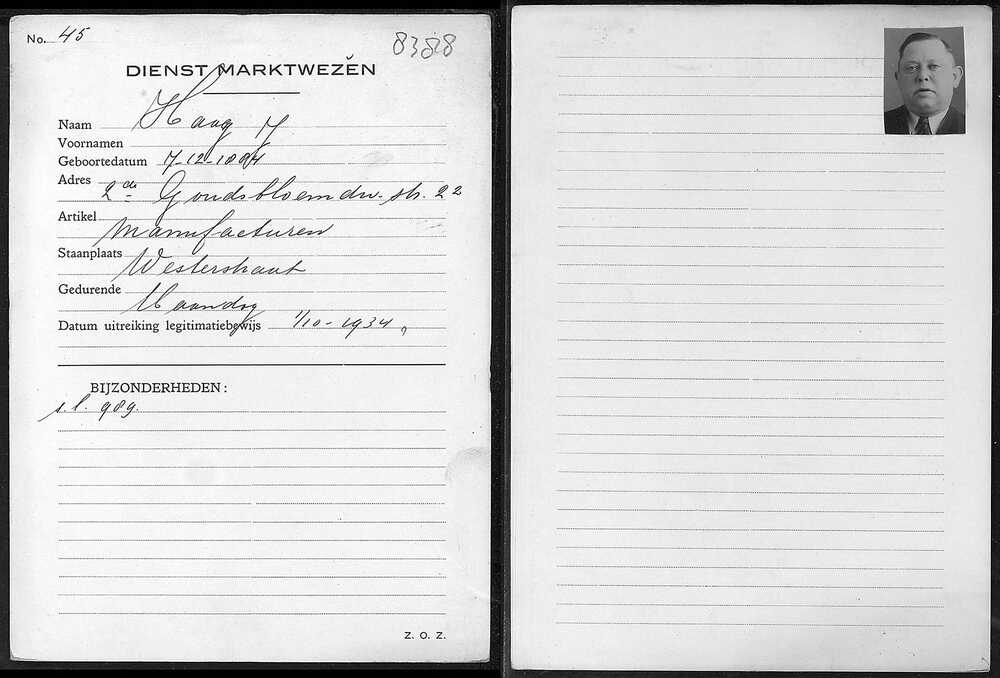 No. 45
8388
DIENST MARKTWEZEN
Naam Haag J
Voornamen
Geboortedatum 7-12-1884
Adres
2de Goudsbloemdw. str. 22
Artikel
Manufacturen
Staanplaats
Westerstraat
Gedurende
Maandag
Datum uitreiking legitimatiebewijs 1/10-1934
BIJZONDERHEDEN:
s.l. 989.
Z. O. Z.